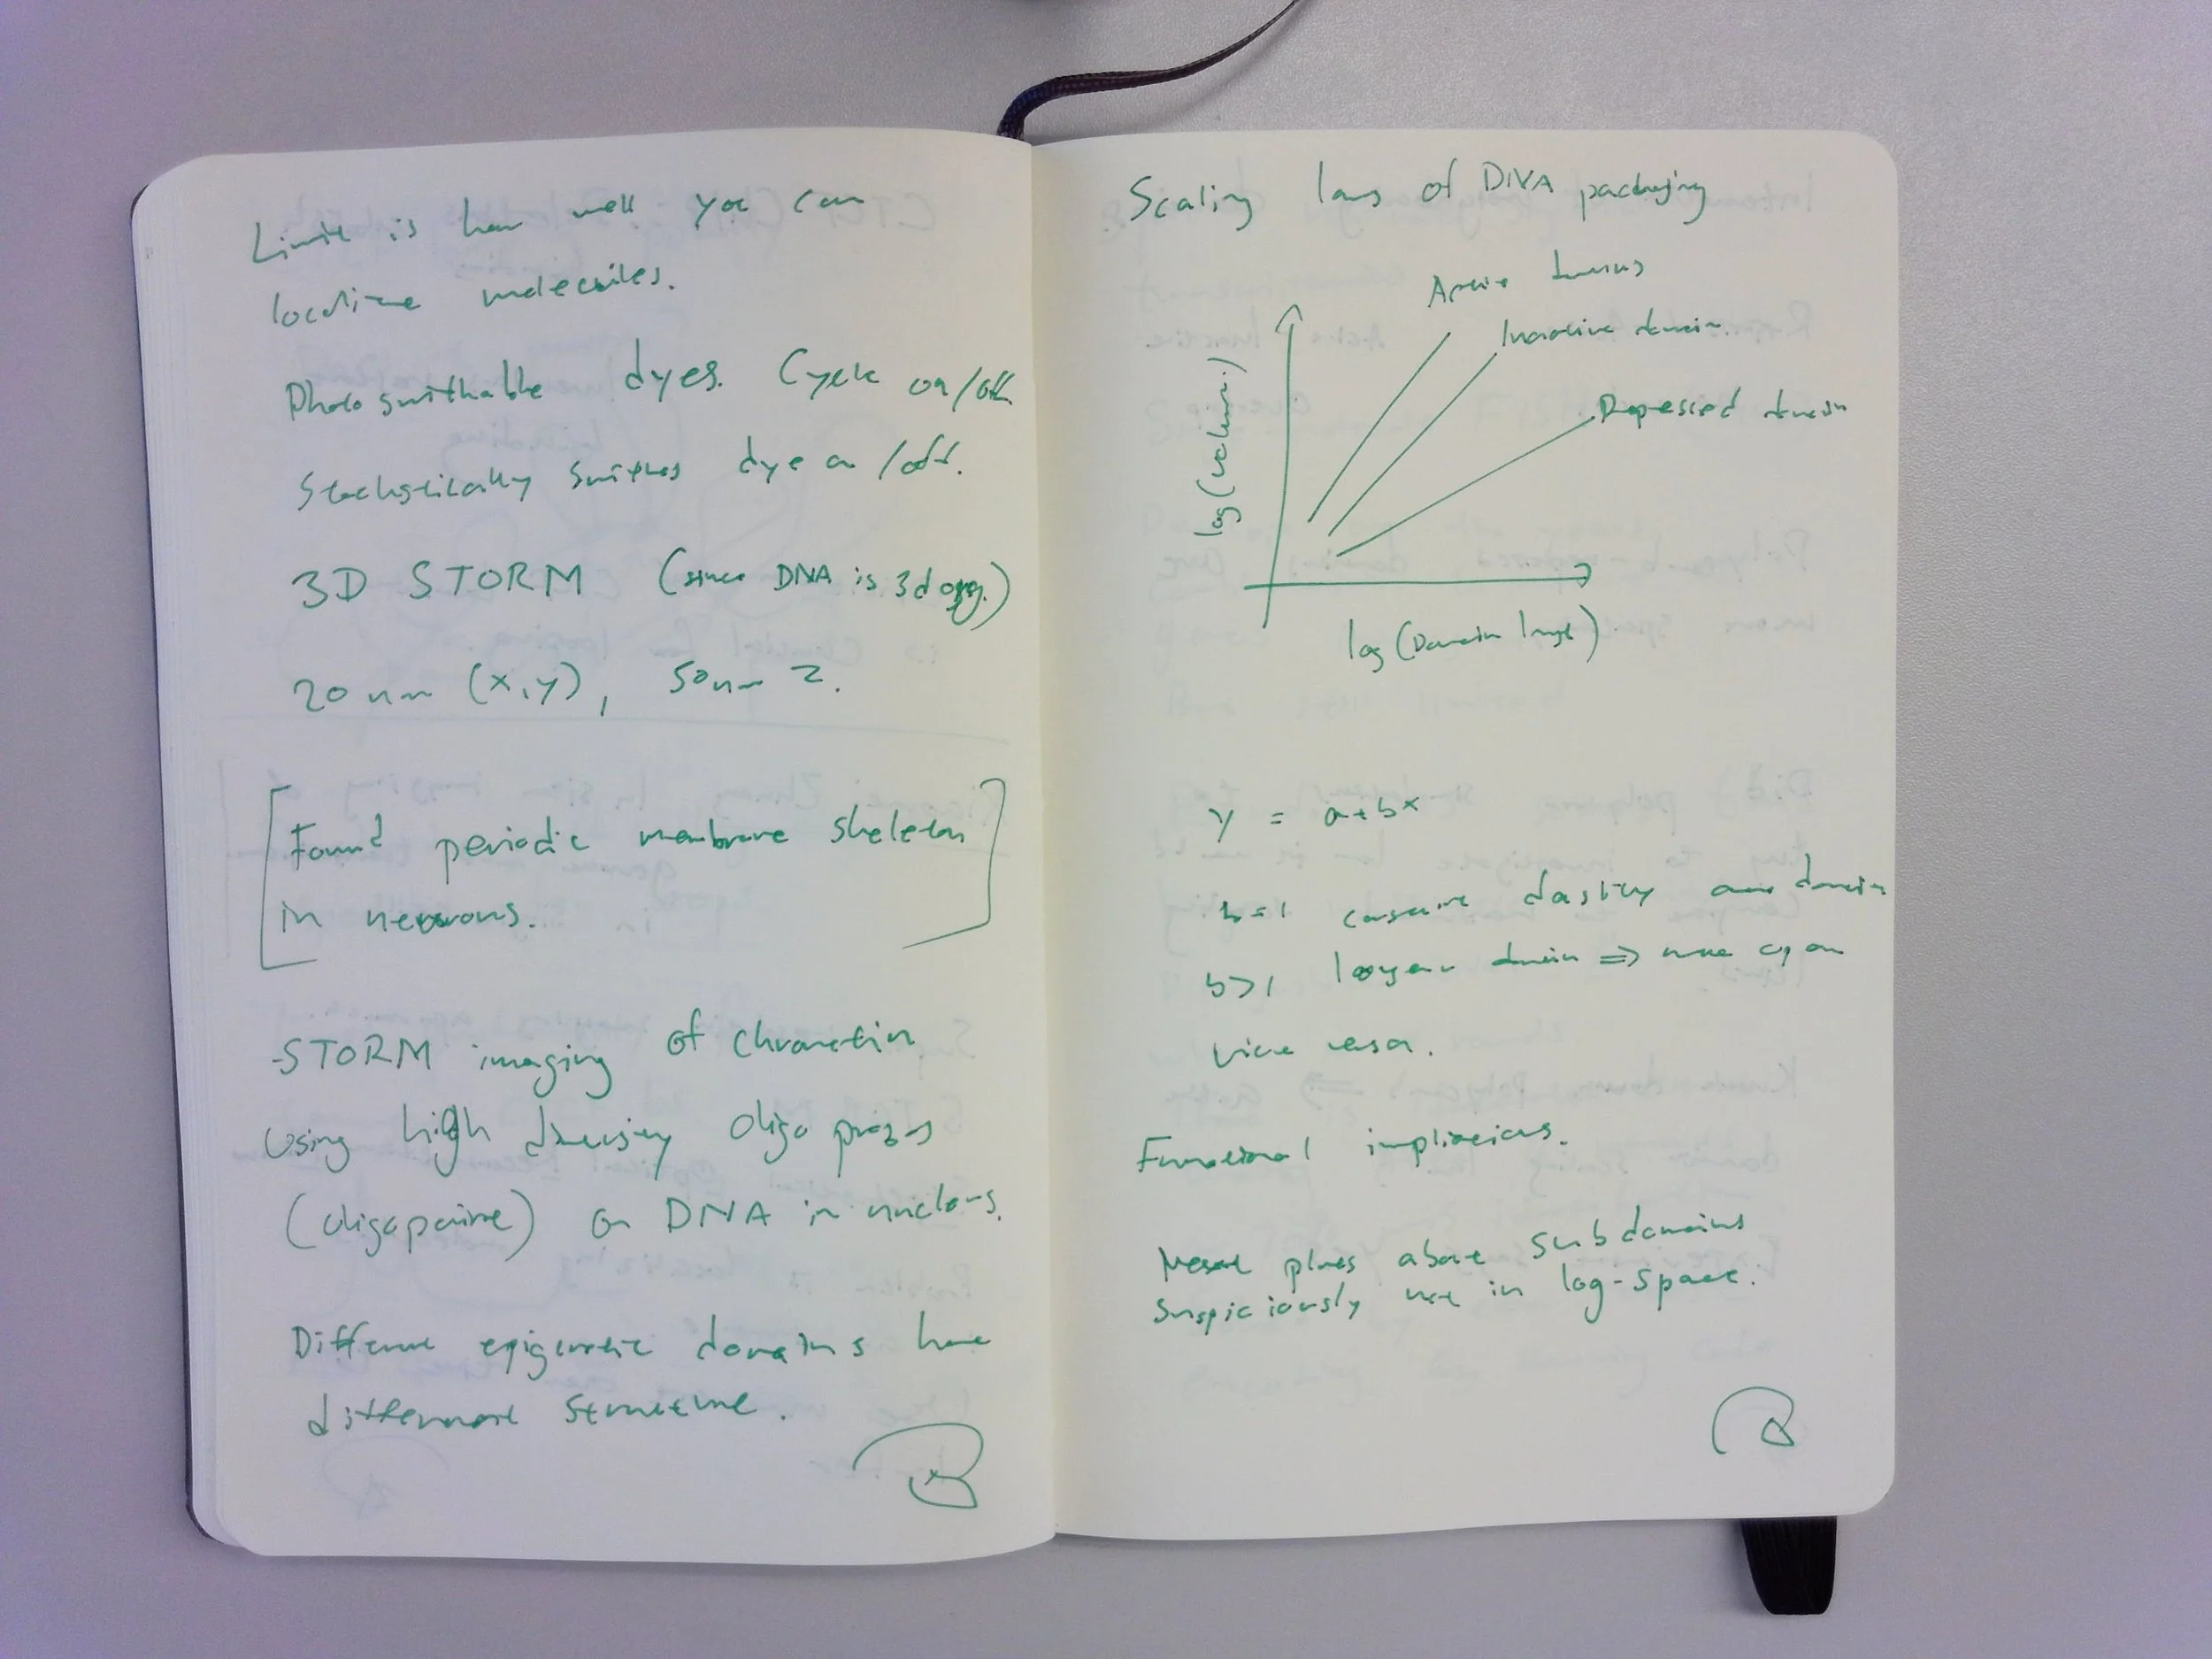 Limit is how well you can
localize molecules.
Photo switchable dyes. Cycle on/off
Stochastically switches dye on/off.
3D STORM (since DNA is 3d org.)
20 nm (x,y), 50nm z.
[Found periodic membrane skeleton
in neurons.]
-STORM imaging of chromatin
Using high density oligo probes
(oligopaint) on DNA in nucleus.
Different epigenetic domains have
different structure.
Scaling laws of DNA packaging
Active domains
Inactive domain
Repressed domain
log(volume)
log(Domain length)
y = a+bx
b=1 constant density domain
b>1 longer domain ⇒ more open
vice versa.
Functional implications.
plots about subdomains
suspiciously not in log-space.